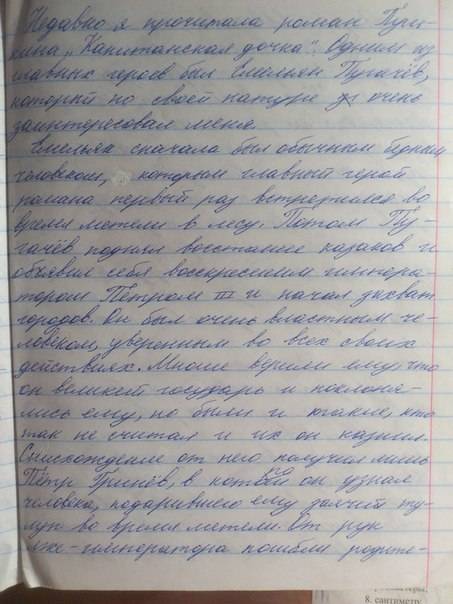 Недавно я прочитала роман Пуш-
кина „Капитанская дочка". Одним из
главных героев был Емельян Пугачёв,
который по своей натуре очень
заинтересовал меня.
Емельян сначала был обычным бедным
человеком, которым главный герой
романа первый раз встретился во
время метели в лесу. Потом Пу-
гачёв поднял восстание казаков и
объявил себя воскресшим импера-
тором Петром III и начал захват
городов. Он был очень властным че-
ловеком, уверенным во всех своих
действиях. Многие верили ему, что
он великий государь и поклоня-
лись ему, но были и такие, кто
так не считал и их он казнил.
Снисхождение от него получил лишь
Пётр Гринёв, в ко он узнал
человека, подарившего ему заячий ту-
луп во время метели. От рук
лже-императора погибли родите-
8. сантиметру